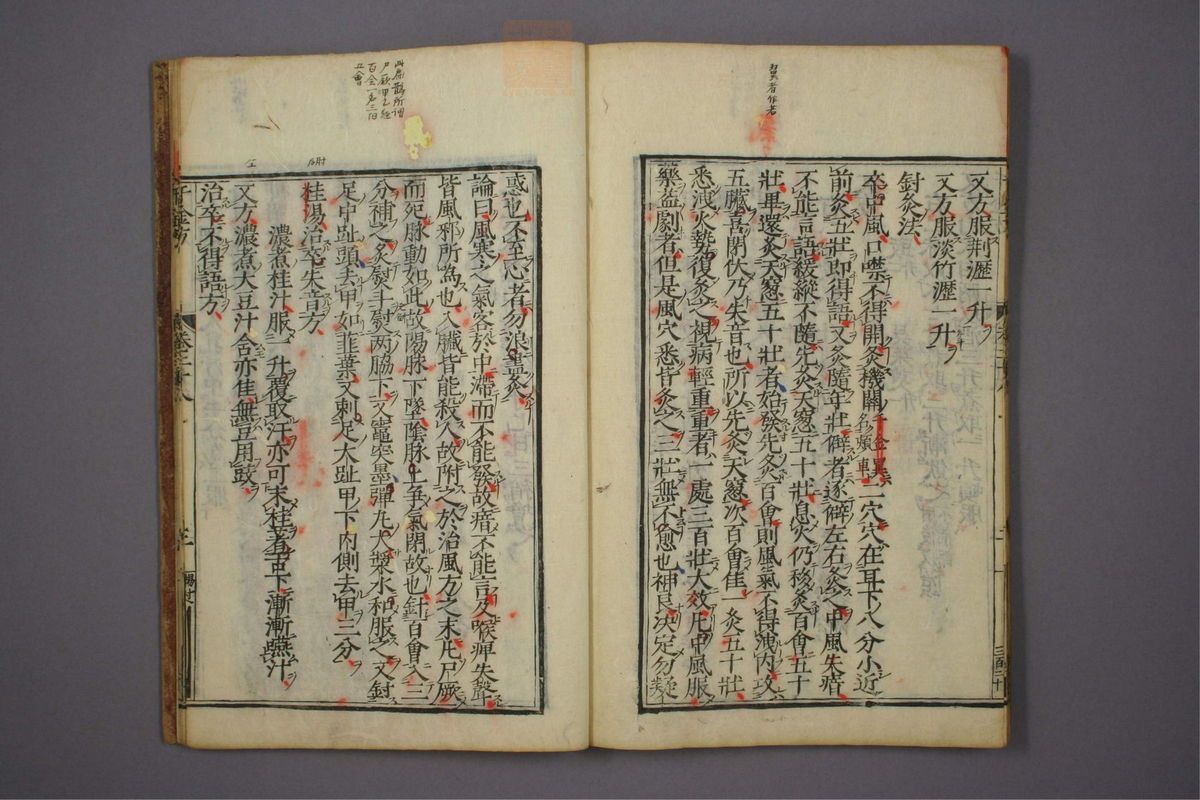 又方服荆瀝一升
又方服淡竹瀝一升
針灸法
卒中風口噤不得開灸機關千金翼名頰車二穴穴在耳下八分小近
前灸五壯即得語又灸隨年壯僻者逐僻左右灸之中風失瘖
不能言語緩縱不隨先灸天窻五十壯息火仍移灸百會五十
壯畢還灸天窻五十壯者始發先灸百會則風氣不得洩内攻
五臟喜閉伏乃失音也所以先灸天窻次百會佳一灸五十壯
悉洩火勢復灸之視病輕重重者一處三百壯大效凡中風服
藥益劇者但是風穴悉皆灸之三壯無不愈也神良决定勿疑
惑也不至心者勿浪盡灸
論曰風寒之氣客於中滯而不能發故瘖不能言及喉痹失聲
皆風邪所為也入臟皆能殺人故附之於治風方之末凡尸厥
而死脉動如此故陽脉下墜陰脉上爭氣閉故也針百會入三
分補之灸熨斗熨兩脇下又竈突墨彈丸大漿水和服之又針
足中趾頭去甲如韮葉又刺足大趾甲下内側去甲三分
桂湯治卒失音方
濃煮桂汁服一升覆取汗亦可末桂著舌下漸漸嚥汁
又方濃煮大豆汁含亦佳無豆用豉
治卒不得語方
千金方
卷二十八
三百二十